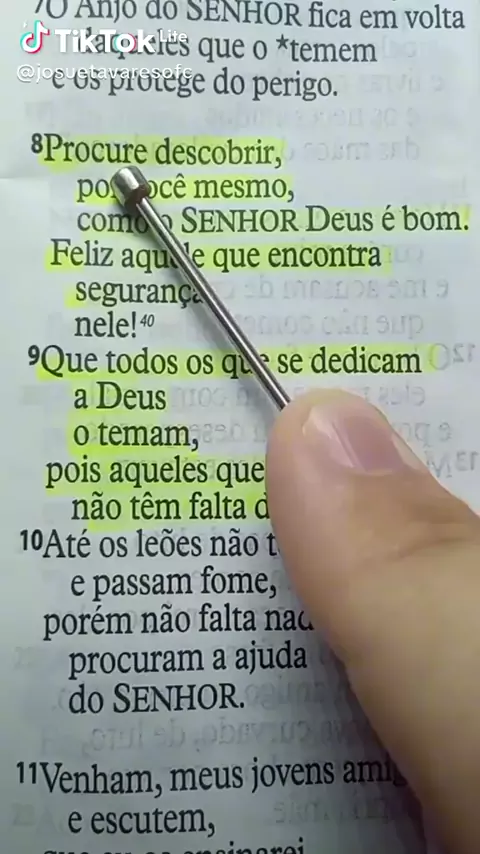 7O Anjo do SENHOR fica em volta
TikTok Lite
que o *temem
@josuetavaresofc
e os protege do perigo.
8Procure descobrir,
você mesmo,
como o SENHOR Deus é bom.
Feliz aquele que encontra
segurança
nele!40
9Que todos os que se dedicam
a Deus
o temam,
pois aqueles que
não têm falta d
10Até os leões não t
e passam fome,
porém não falta nad
procuram a ajuda
do SENHOR.
11Venham, meus jovens amig
e escutem,
que eu os ensinarei